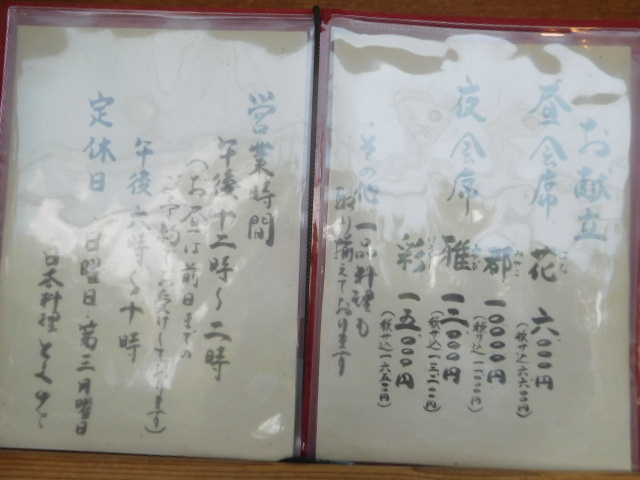 お献立
昼会席 花 六〇〇〇円
(税サ込 六六〇〇円)
夜会席 都 一〇〇〇〇円
(税サ込 一一〇〇〇円)
雅 一二〇〇〇円
彩 一五〇〇〇円
(税サ込 一六五〇〇円)
・その他 一品料理も
取り揃えております
営業時間
午後十二時〜二時
(お昼は前日までの
ご予約でお受けしております)
午後六時〜十時
定休日 日曜日・第三月曜日
日本料理